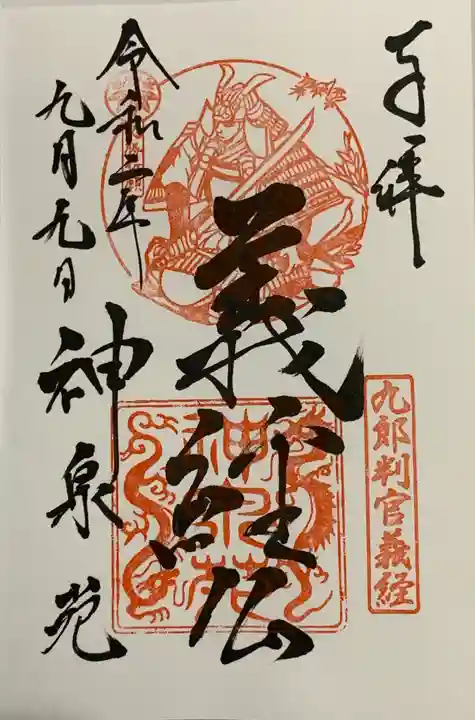 奉拝
九郎判官義経
義経公
神泉苑
令和二年
九月九日
神泉苑